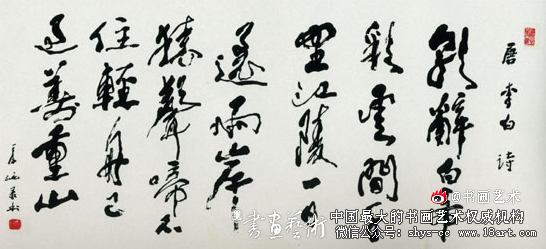 唐李白詩
朝辭白帝
彩雲間千
里江陵一日
還兩岸
猿聲啼不
住輕舟已
過萬重山
書畫藝術
@书画艺术
中国最大的书画艺术权威机构
微信公众号：shys-cc www.18art.com